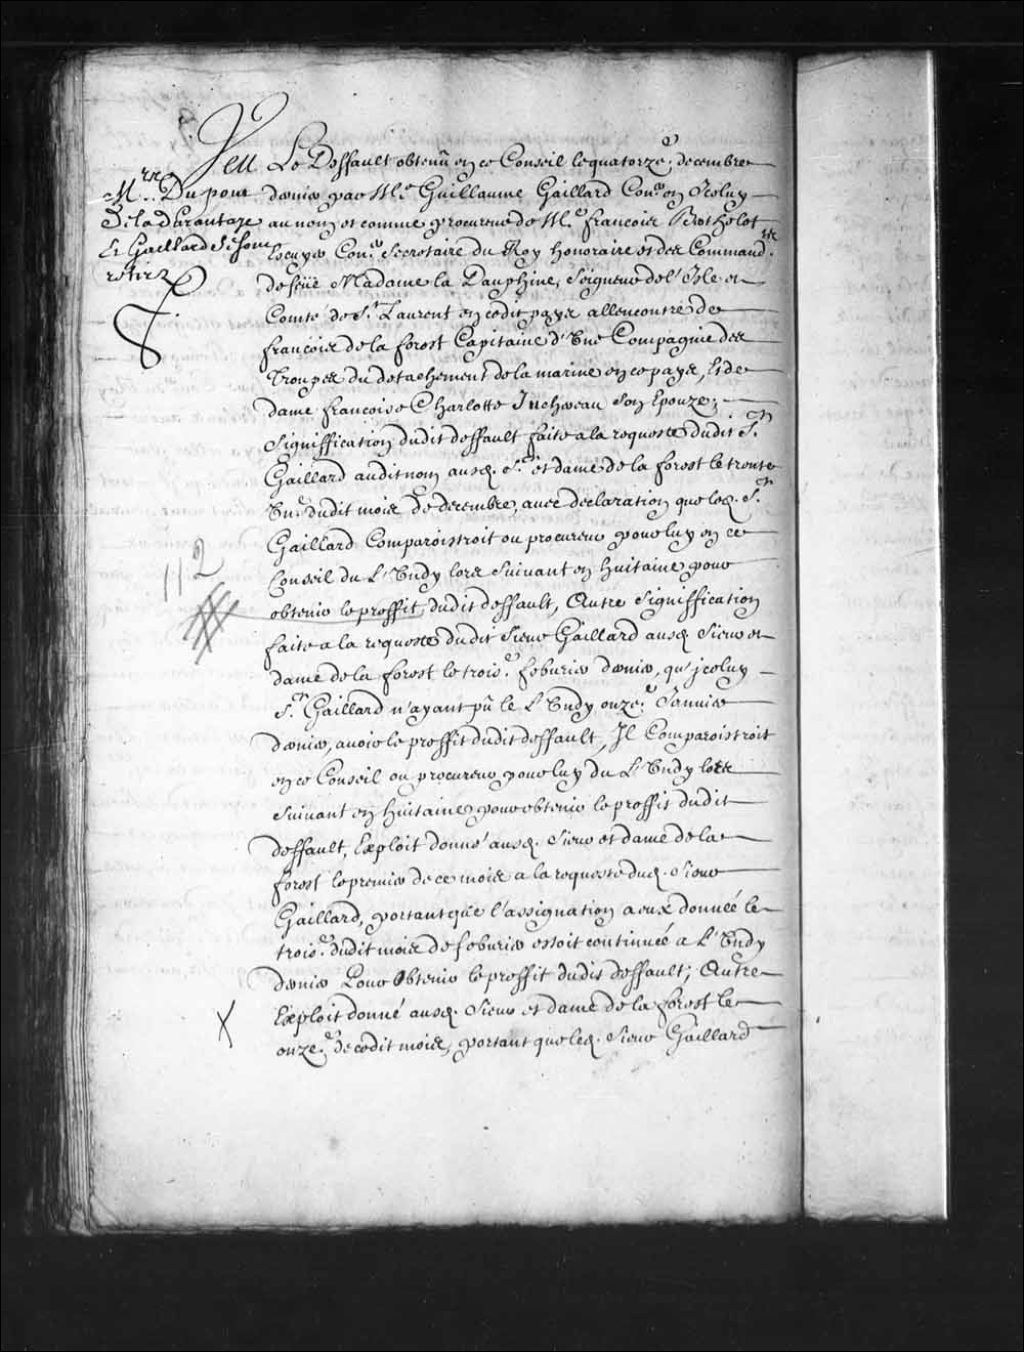 Veu Le Deffault obtenu en ce Conseil le quatorze.e decembre
dernier par M.e Guillaume Gaillard Con.er en Iceluy
au nom et comme procureur de M.e francois Berthelot
Escuyer Con.er Secretaire du Roy honoraire et des Command.
de feüe Madame la Dauphine, Seigneur de l'Isle et
Comte de S.t Laurent en cedit pays allencontre de
francois de la forest Capitaine d'Vne Compagnie des
Troupes du detachement de la marine en ce pays, Et de
dame francoise Charlotte Juchereau son Epouze;
Signiffication dudit deffault faite a la requeste dudit S.r
Gaillard audit nom ausd. S.r et dame de la forest le trente
Vn.e dudit mois de decembre, avec declaration que led. S.r
Gaillard Comparoistroit ou procureur pour luy en ce
Conseil du L'Vndy lors suivant en huitaine pour
obtenir le proffit dudit deffault, Autre Signiffication
faite a la requeste dudit Sieur Gaillard ausd. Sieur et
dame de la forest le trois.e feburier dernier, qu'jceluy
S.r Gaillard n'ayant pû le L'Vndy onze.e Januier
dernier, auoir le proffit dudit deffault, Il Comparoistroit
en ce Conseil ou procureur pour luy du L'Vndy lors
suivant en huitaine pour obtenir le proffit dudit
deffault, Exploit donné ausd. Sieur et dame de la
forest le premier de ce mois a la requeste dud. Sieur
Gaillard, portant que l'assignation a eux donnée le
trois.e dudit mois de feburier estoit continuée a L'Vndy
dernier Pour Obtenir le proffit dudit deffault; Autre
Exploit donné ausd. Sieur et dame de la forest le
onze.e de cedit mois, portant que led. Sieur Gaillard
M.rs Dupont
De la durantaye
Et Gaillard se sont
retirez
112
X